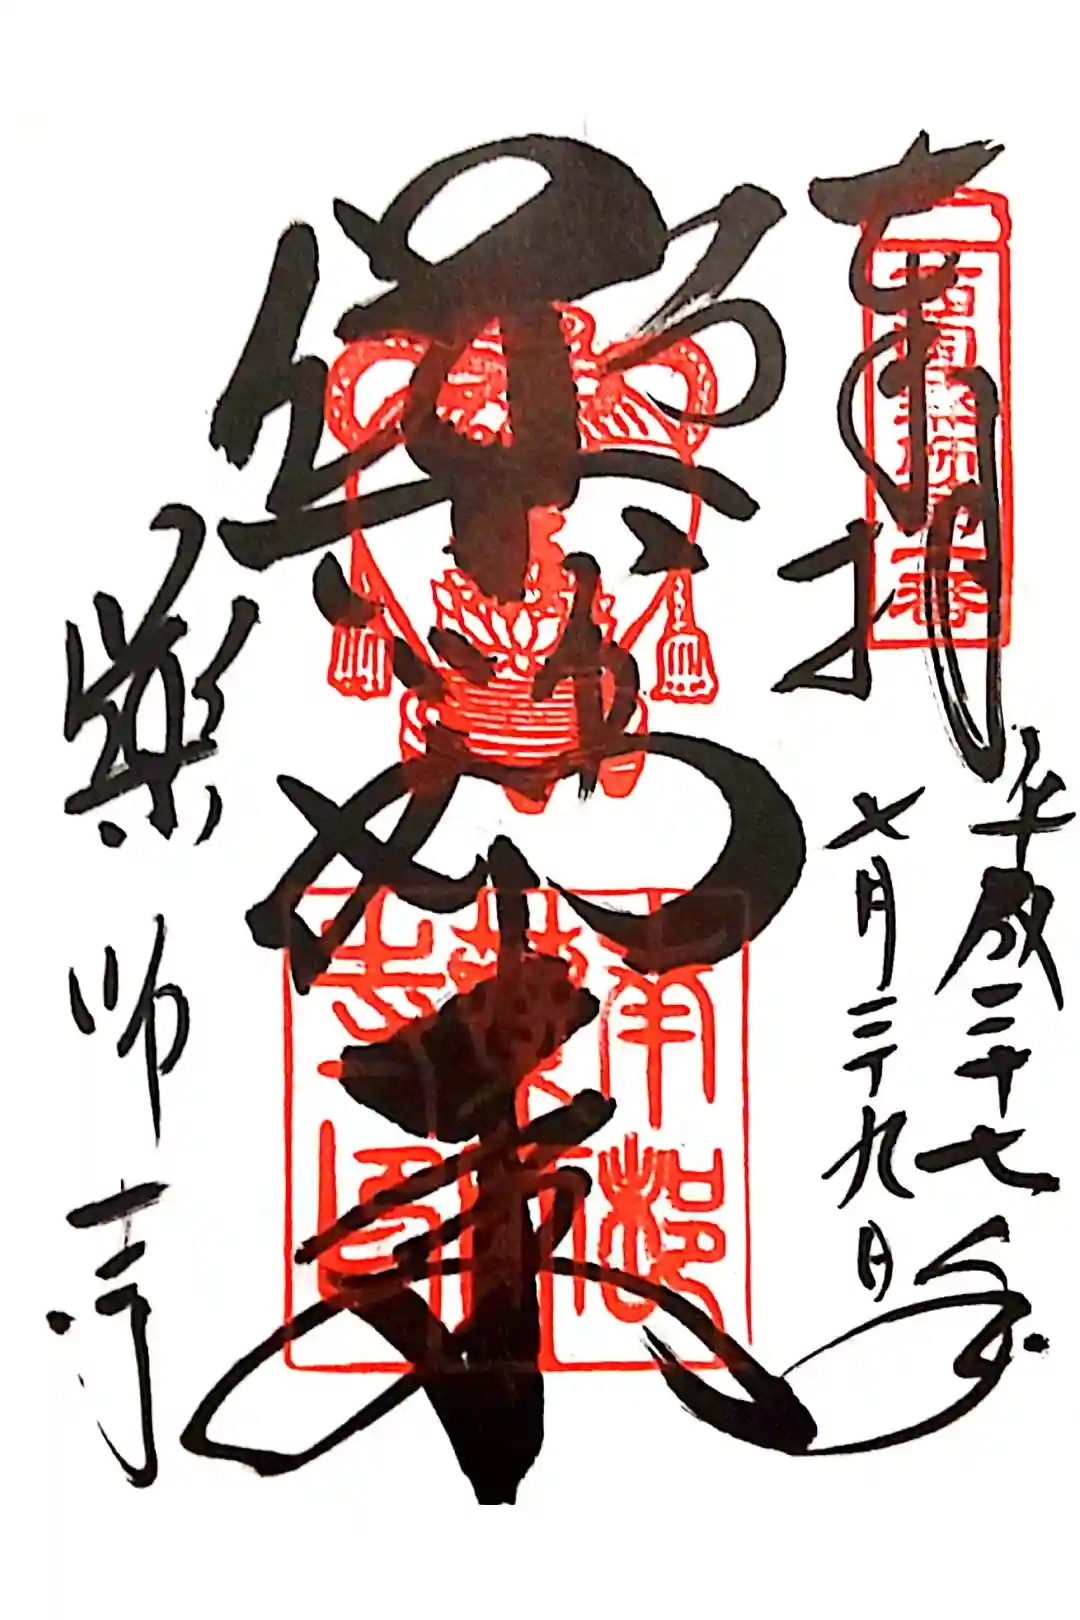 奉拝
平成二十七年
七月二十九日
薬師如来
藥師寺